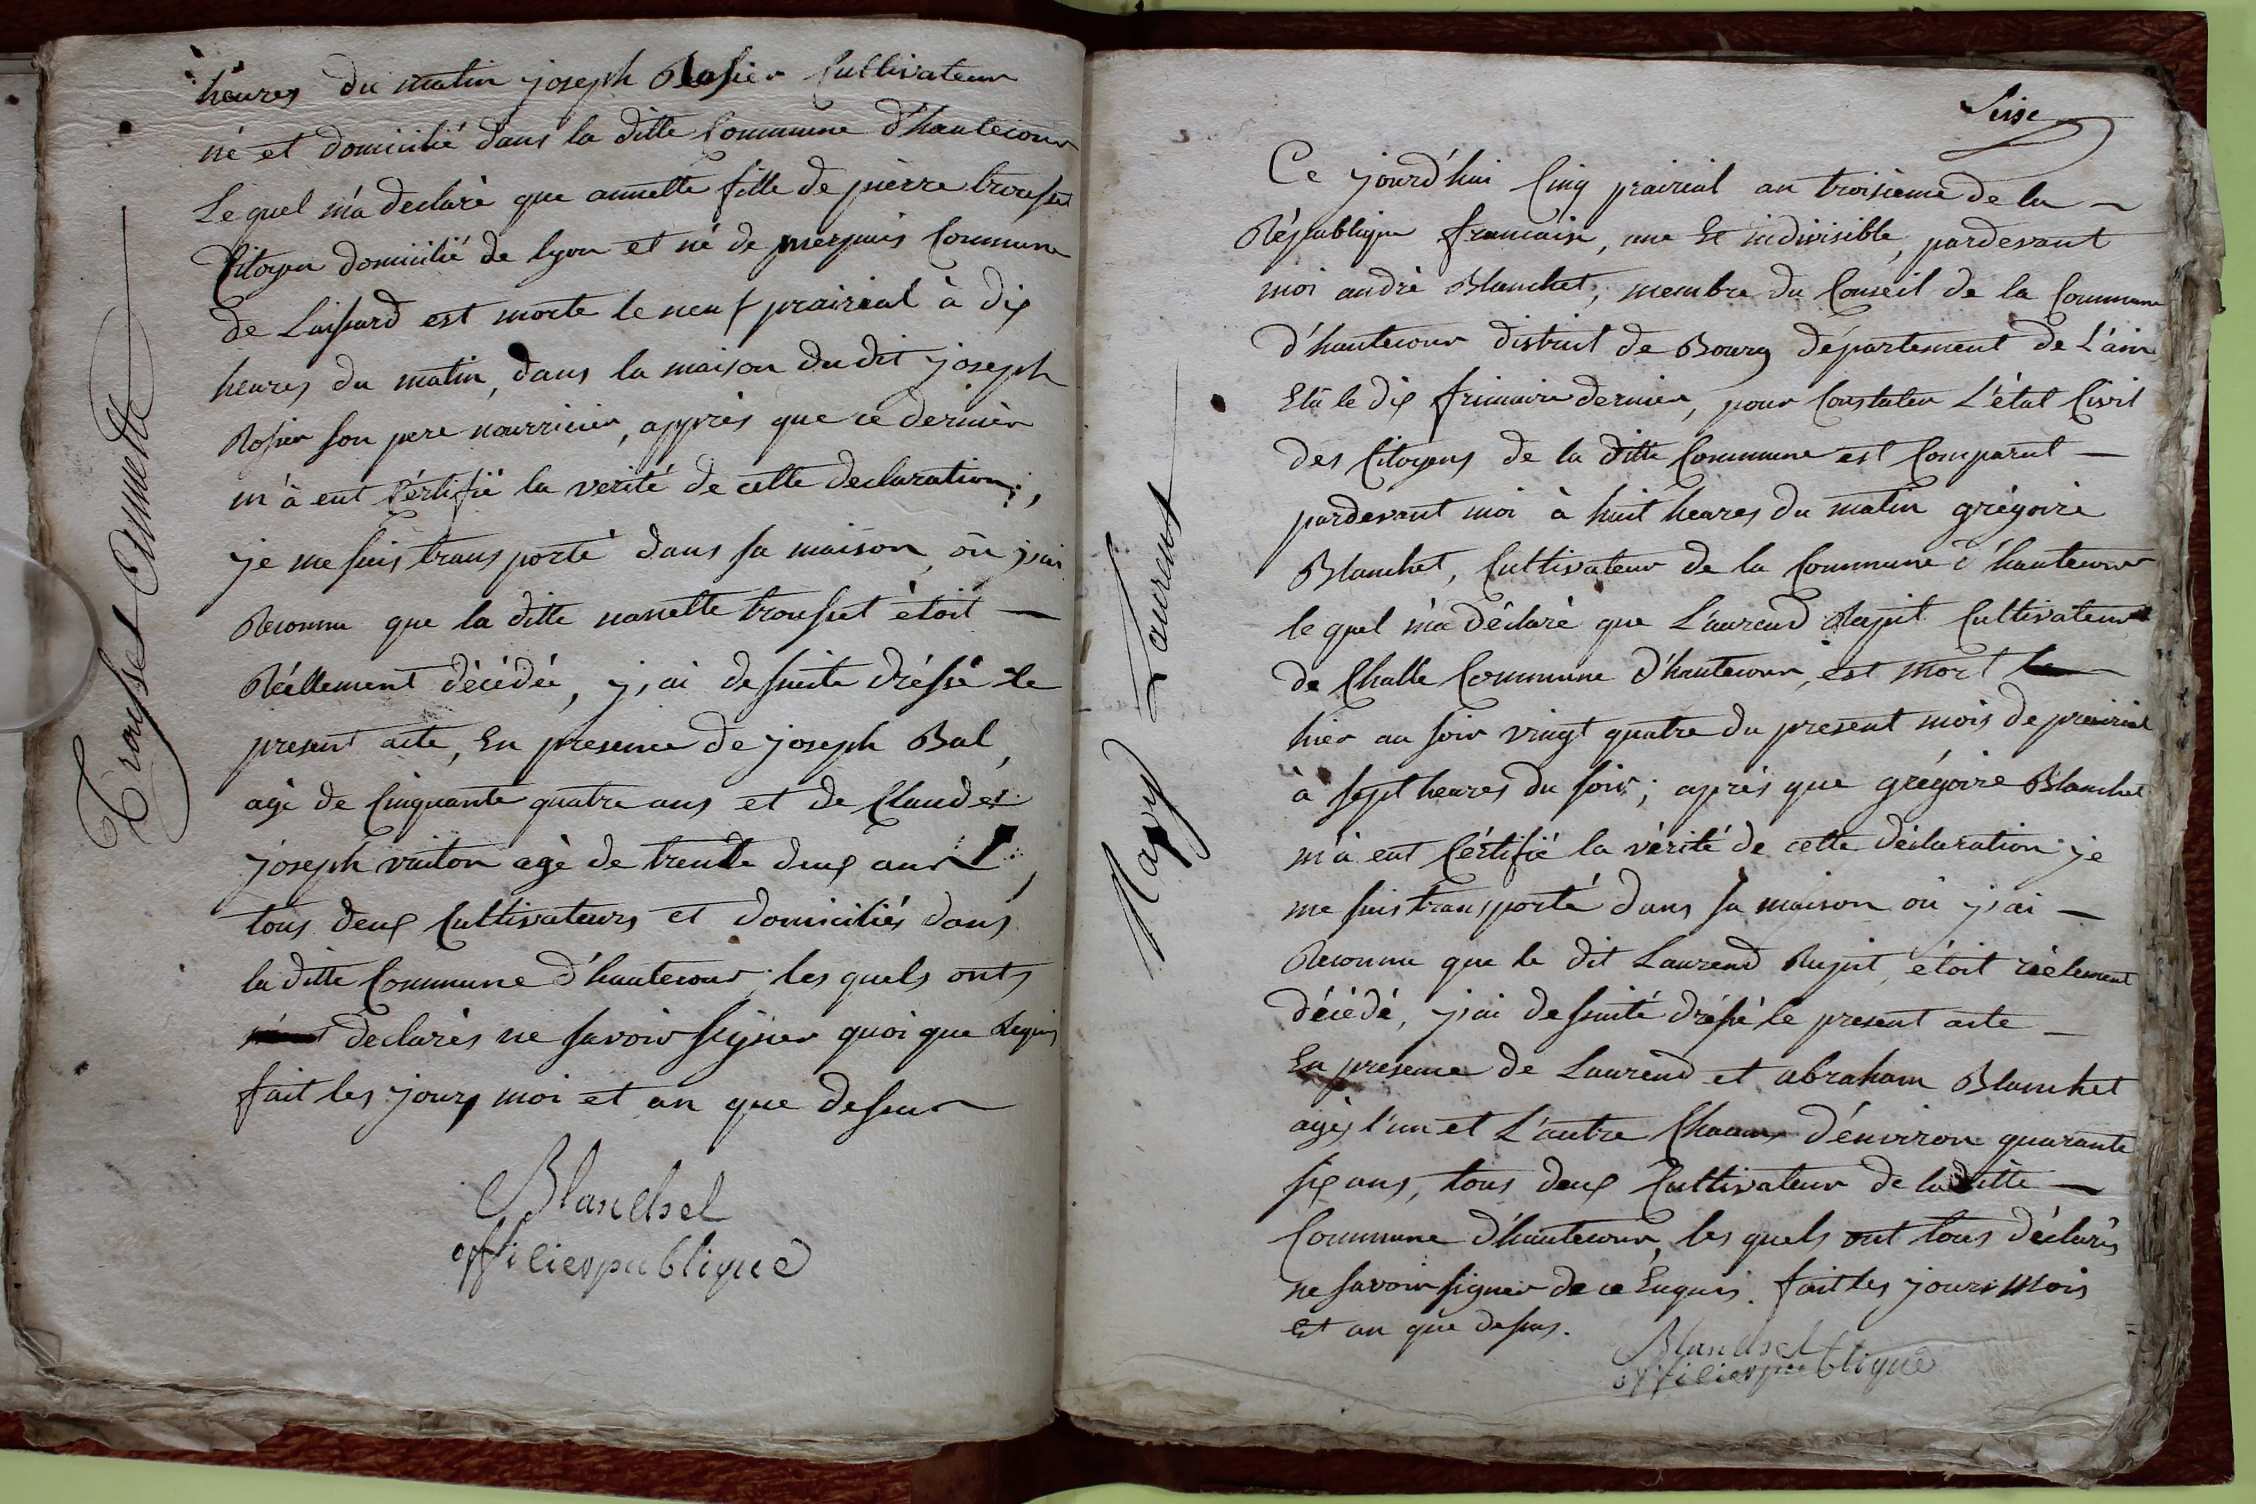 heures du matin joseph Rosier Cultivateur
né et domicilié dans la ditte Commune d'hautecour
Le quel m'a declaré que annette fille de pierre trousset
Citoyen domicilié de lyon et né de merpuis Commune
de Laissard est morte le neuf prairial à dix
heures du matin, dans la maison du dit joseph
Rosier son pere nourricier, apprès que ce dernièr
m'à eut Cértifié la verité de cette declaration;,
je me suis transporté dans sa maison, où j'ai
Reconnu que la ditte nanette trousset étoit —
Réellement décédée, j'ai de suite dréssé le
present acte, En presence de joseph Bal,
agé de Cinquante quatre ans et de Claude
joseph vuiton agé de trente deux ans,
tous deux Cultivateurs et domiciliés dans
la ditte Commune d'hautecour; les quels onts
déclarés ne savoir signer quoi que Requis
fait les jours moi et an que dessus
Blanchet
officier publique
Trousset Annette
Seise
Ce jourd'hui Cinq prairial an troisième de la —
République francaise, une Et indivisible, pardevant
moi andré Blanchet, membre du Conseil de la Commune
d'hautecour district de Bourg département de L'ain
Elu le dix frimaire dernier, pour Constater L'état Civil
des Citoyens de la ditte Commune est Comparut —
pardevant moi à huit heures du matin grégoire
Blanchet, Cultivateur de la Commune d'hautecour
le quel m'à déclaré que Laurend Cultivateur
de Challe Commune d'hautecour, est mort
hier au soir vingt quatre du present mois de prairial
à sept heures du soir; aprés que grégoire Blanchet
m'à eut Cértifié la vérité de cette déclaration je
me suis transporté dans sa maison où j'ai —
Reconnu que le dit Laurend étoit réelement
décédé, j'ai de suite dréssé le present acte —
En presence de Laurend et abraham Blanchet
agés l'un et L'autre Chacun d'énviron quarante
six ans, tous deux Cultivateur de la ditte —
Commune d'hautecour, les quels ont tous déclarés
ne savoir signer de ce Enquis. fait les jours mois
Et an que dessus.
Blanchet
officier publique
Laurent